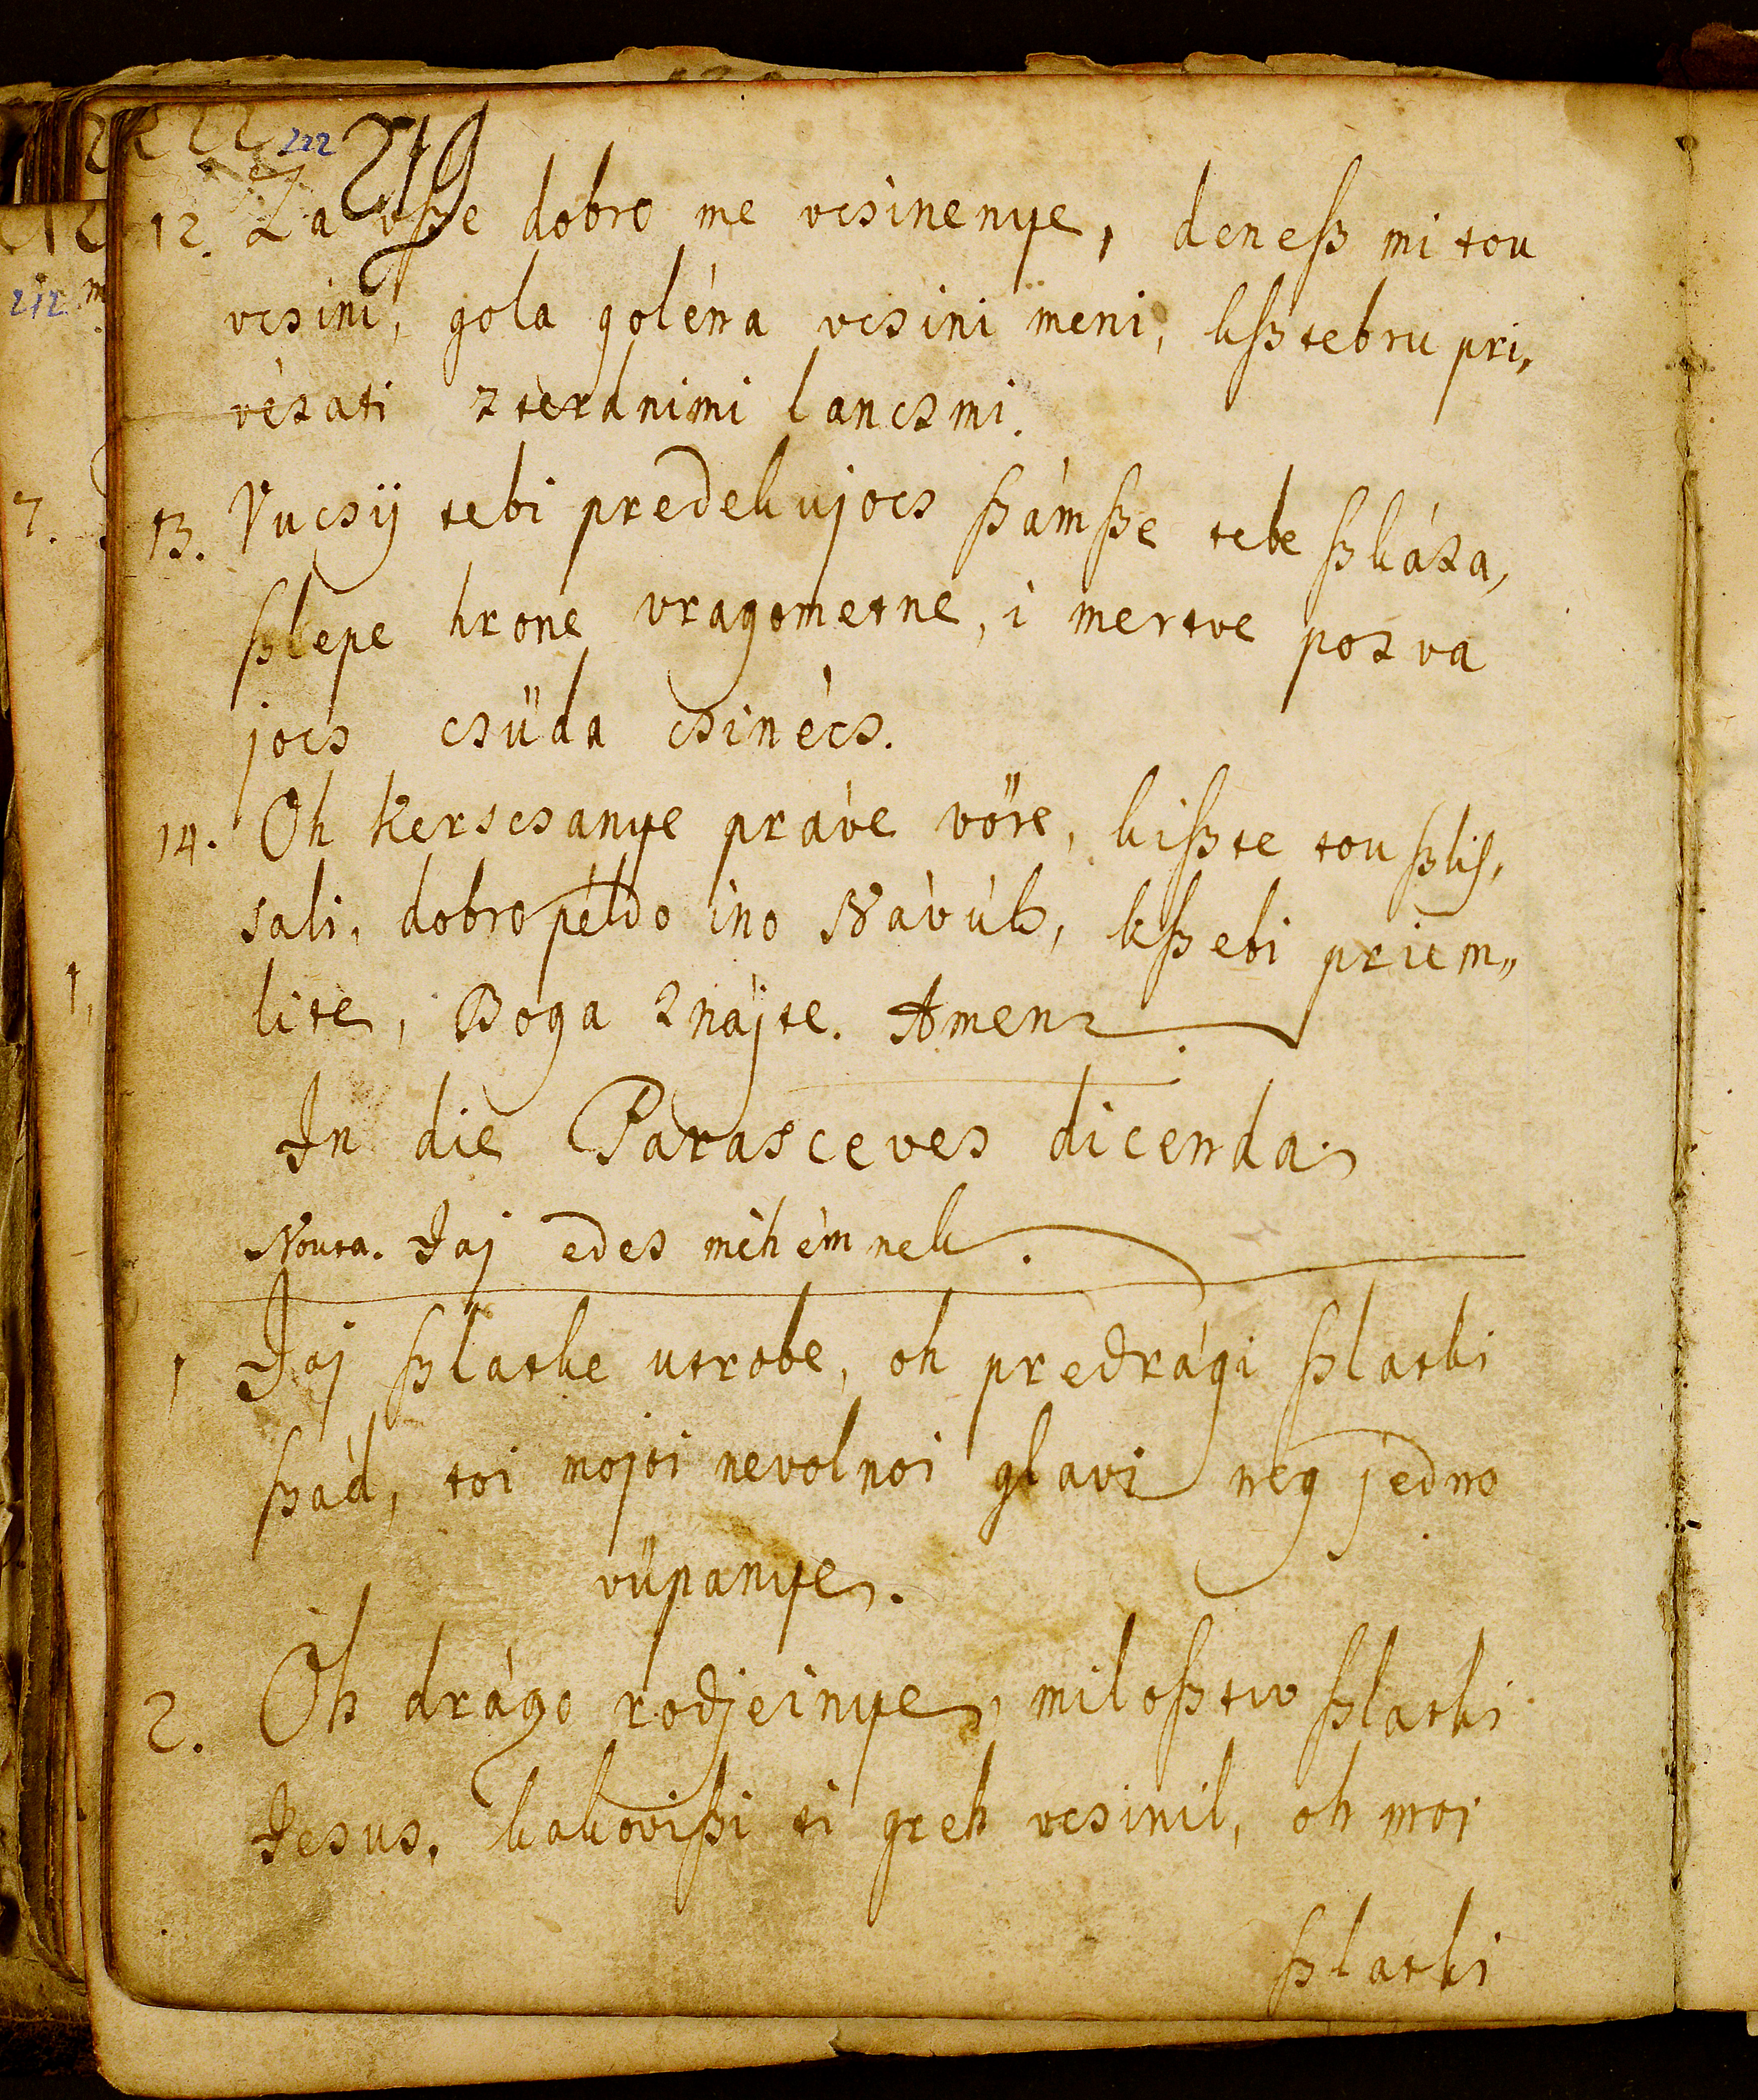 222 219
12. Za vsze dobro me vcsinenye, denesz mi tou
vcsini, gola goléna vcsini meni, ksztebru pri,
vézati zterdnimi lanczmi.
13. Vucsÿ tebi predekujocs számsze tebe szkáza,
szlepe hrone vragometne, i mertve pozva
jocs csüda csinécs.
14. Oh kerscsanye práve vöre, kiszte tou szlis,
sali, dobro példo ino Návúk, kszebi priem„
lite, Boga znájte. Amen
In die Parasceves dicenda
Nouta. Jaj edes méhémnek.
1 Jaj szlatke utrobe, oh predrági szlatki
szád, toi mojoi nevolnoi glavi neg jedno
vüpanye.
2. Oh drágo rodjeinye, milosztiv szlatki
Jesus, kakoviszi ti greh vcsinil, oh moi
szlatki
7.
212
1,